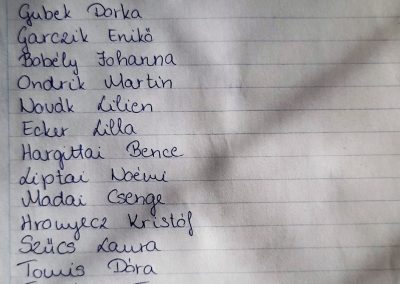 Gubek Dorka
Garczik Enikő
Bobély Johanna
Ondrik Martin
Novák Lilien
Ecker Lilla
Hargittai Bence
Liptai Noémi
Madai Csenge
Hronyecz Kristóf
Szűcs Laura
Tomis Dóra